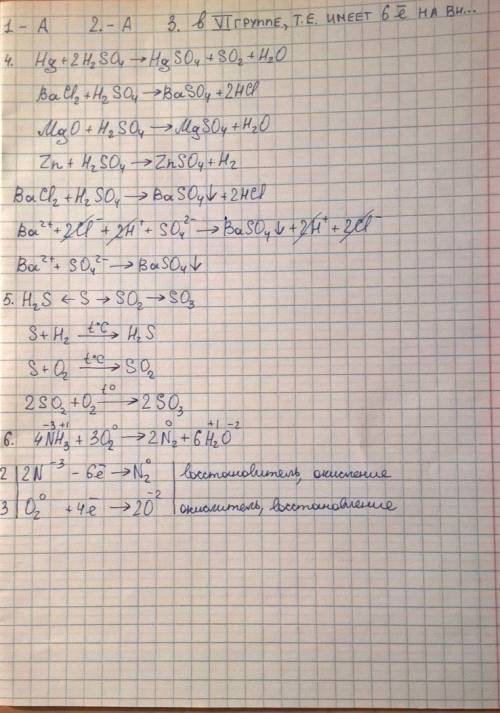 1 - А 2. - А 3. в VI группе, т.е. имеет 6 ē на вн...
4. Hg + 2H₂SO₄ → HgSO₄ + SO₂ + H₂O
BaCl₂ + H₂SO₄ → BaSO₄ + 2HCl
MgO + H₂SO₄ → MgSO₄ + H₂O
Zn + H₂SO₄ → ZnSO₄ + H₂
BaCl₂ + H₂SO₄ → BaSO₄↓ + 2HCl
Ba²⁺ + 2Cl⁻ + 2H⁺ + SO₄²⁻ → BaSO₄↓ + 2H⁺ + 2Cl⁻
Ba²⁺ + SO₄²⁻ → BaSO₄↓
5. H₂S ← S → SO₂ → SO₃
S + H₂ —t°C→ H₂S
S + O₂ —t°C→ SO₂
2SO₂ + O₂ —t°→ 2SO₃
6. 4N⁻³H₃⁺¹ + 3O₂⁰ → 2N₂⁰ + 6H₂⁺¹O⁻²
2 | 2N⁻³ - 6ē → N₂⁰ | восстановитель, окисление
3 | O₂⁰ + 4ē → 2O⁻² | окислитель, восстановление